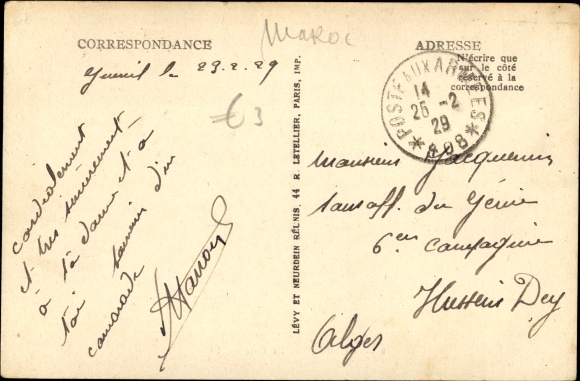 Maroc
CORRESPONDANCE
le 23.2.29
€3
cordialement
et très sincèrement
à ta dame et à
toi souvenir d'un
camarade
LÉVY ET NEURDEIN RÉUNIS, 44 R. LETELLIER, PARIS, IMP.
ADRESSE
N'écrire que
sur le côté
réservé à la
correspondance
POSTE AUX ARMÉES
14
25 -2
29
*408*
Monsieur Jacquemin
sous off. du Génie
6en Compagnie
Hussein Dey
Alger